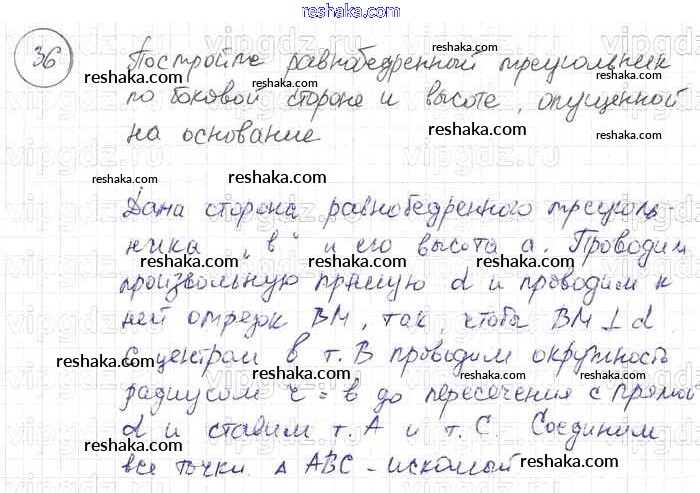 reshaka.com
36 Постройте равнобедренный треугольник
reshaka.com reshaka.com reshaka.com
по боковой стороне и высоте, опущенной
на основание
reshaka.com reshaka.com
reshaka.com
Дана сторона равнобедренного треуголь-
reshaka.com reshaka.com
ника „в“ и его высота а. Проводим
reshaka.com reshaka.com
произвольную прямую d и проводим к
ней отрезок ВМ, так, чтобы ВМ ⊥ d
reshaka.com
С центром в т. В проводим окружность
reshaka.com reshaka.com
радиусом r = в до пересечения с прямой
d и ставим т. А и т. С. Соединим
reshaka.com reshaka.com
все точки. Δ АВС - искомый
reshaka.com
reshaka.com